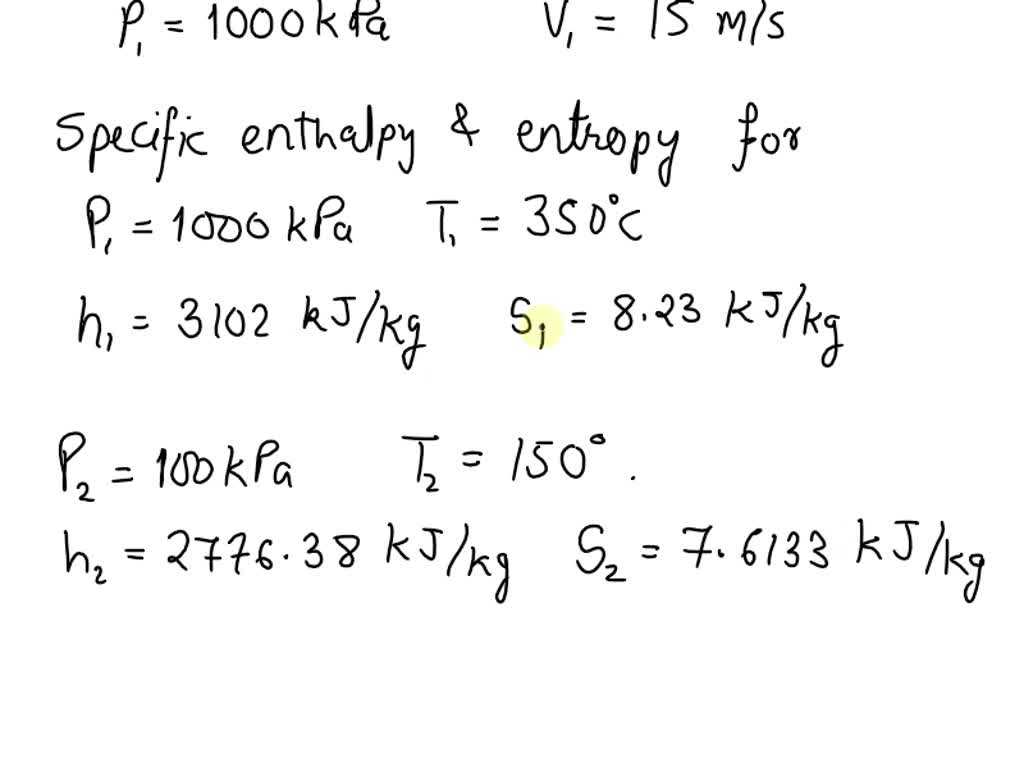 P₁ = 1000 kPa V₁ = 15 m/s
Specific enthalpy & entropy for
P₁ = 1000 kPa T₁ = 350°C
h₁ = 3102 kJ/kg S₁ = 8.23 kJ/kg
P₂ = 100 kPa T₂ = 150°.
h₂ = 2776.38 kJ/kg S₂ = 7.6133 kJ/kg